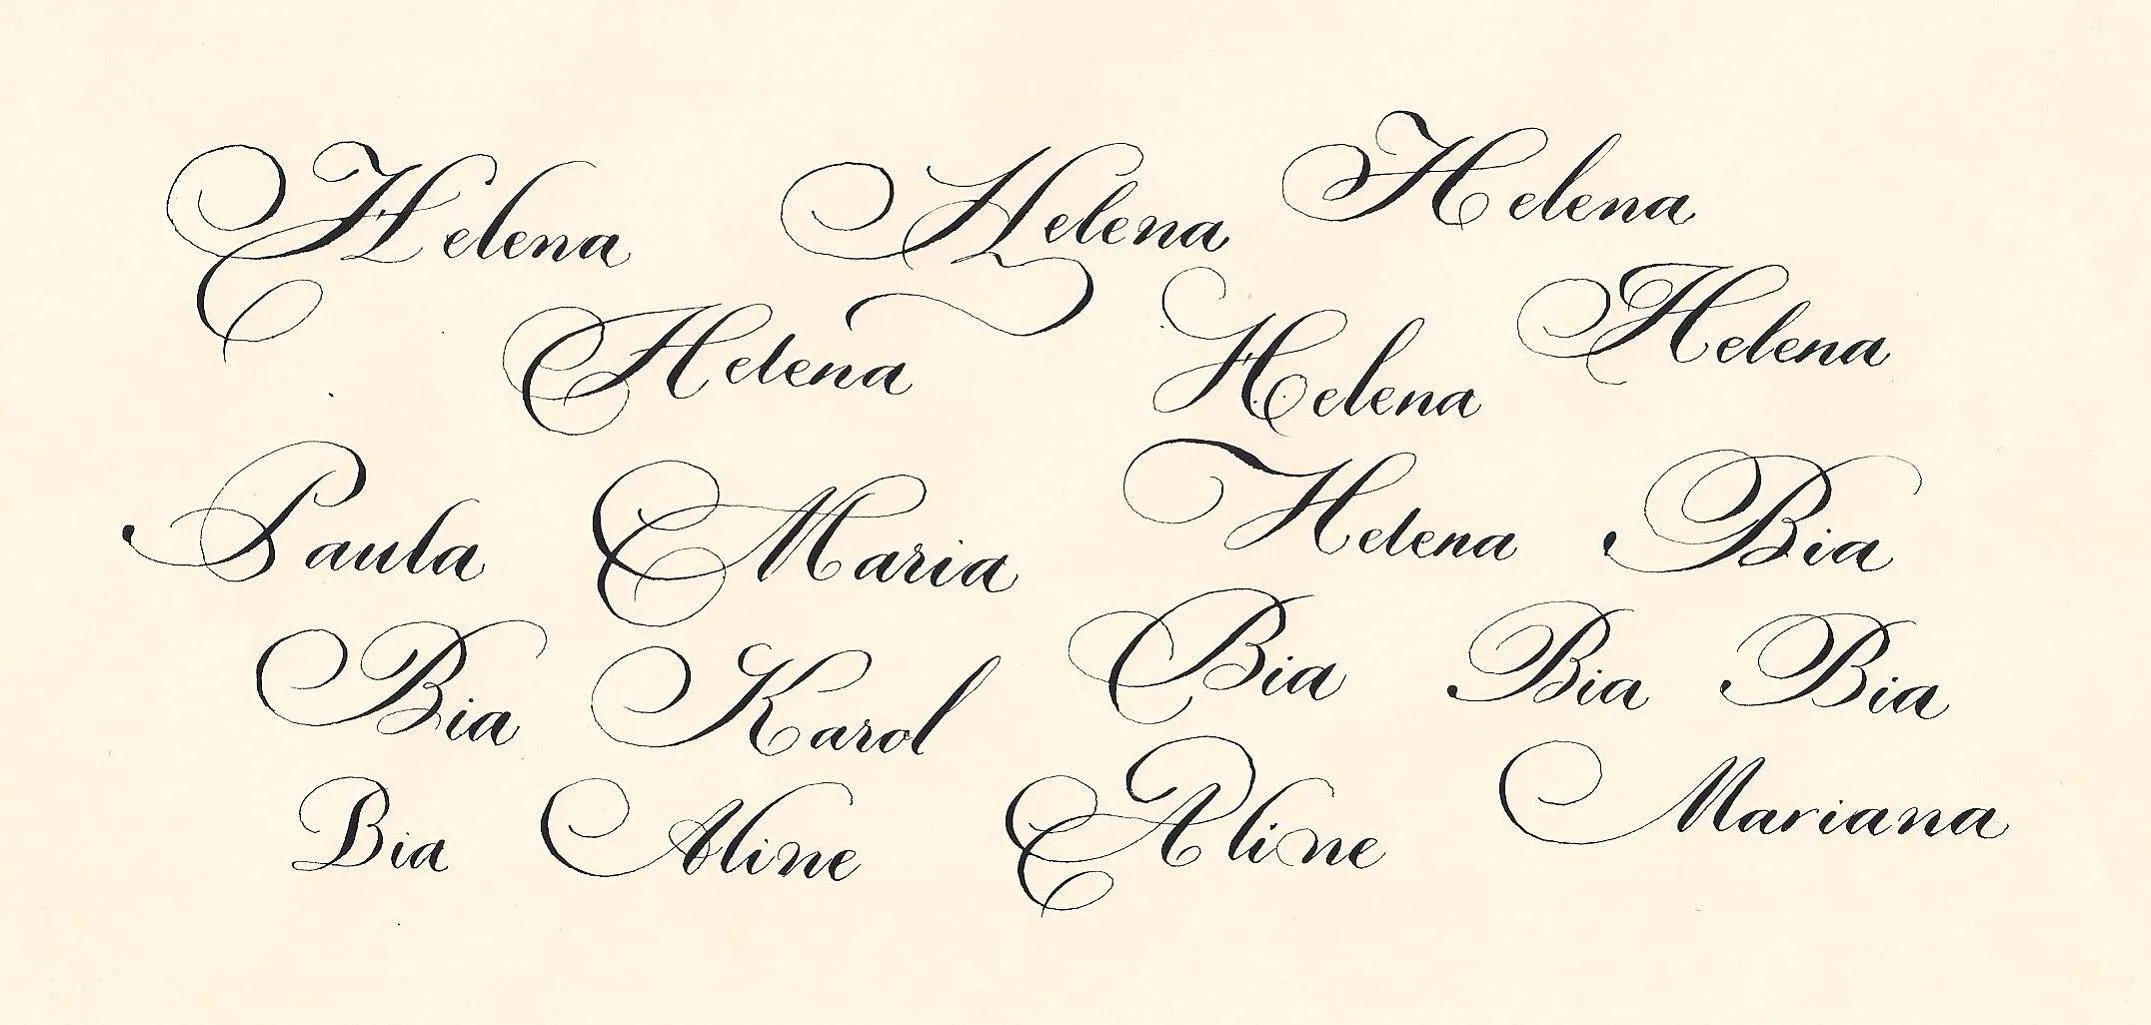 Helena Helena Helena
Helena Helena Helena
Paula Maria Helena Bia
Bia Karol Bia Bia Bia
Bia Aline Aline Mariana